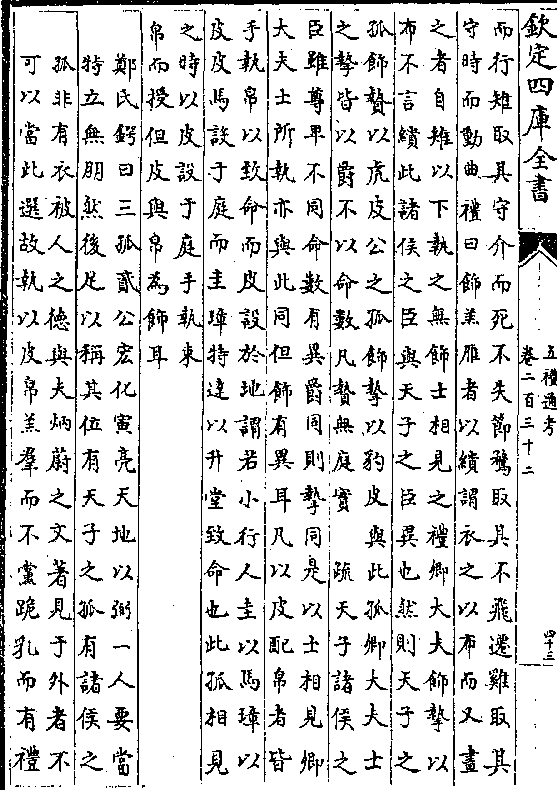 欽定四庫全書
五禮通考
卷二百三十二
四十三
而行雉取其守介而死不失節鶩取其不飛遷雞取其
守時而動曲禮曰飾羔雁者以繢謂衣之以布而又畫
之者自雉以下執之無飾士相見之禮卿大夫飾摯以
布不言繢此諸侯之臣與天子之臣異也然則天子之
孤飾贄以虎皮公之孤飾摯以豹皮與此孤卿大夫士
之摯皆以爵不以命數凡贄無庭實　疏天子諸侯之
臣雖尊卑不同命數有異爵同則摯同是以士相見卿
大夫士所執亦與此同但飾有異耳凡以皮配帛者皆
手執帛以致命而皮設於地謂若小行人圭以馬璋以
皮皮馬設于庭而圭璋特達以升堂致命也此孤相見
之時以皮設于庭手執束
帛而授但皮與帛為飾耳
鄭氏鍔曰三孤貳公宏化寅亮天地以弼一人要當
特立無朋然後足以稱其位有天子之孤有諸侯之
孤非有衣被人之德與夫炳蔚之文著見于外者不
可以當此選故執以皮帛羔羣而不黨跪乳而有禮